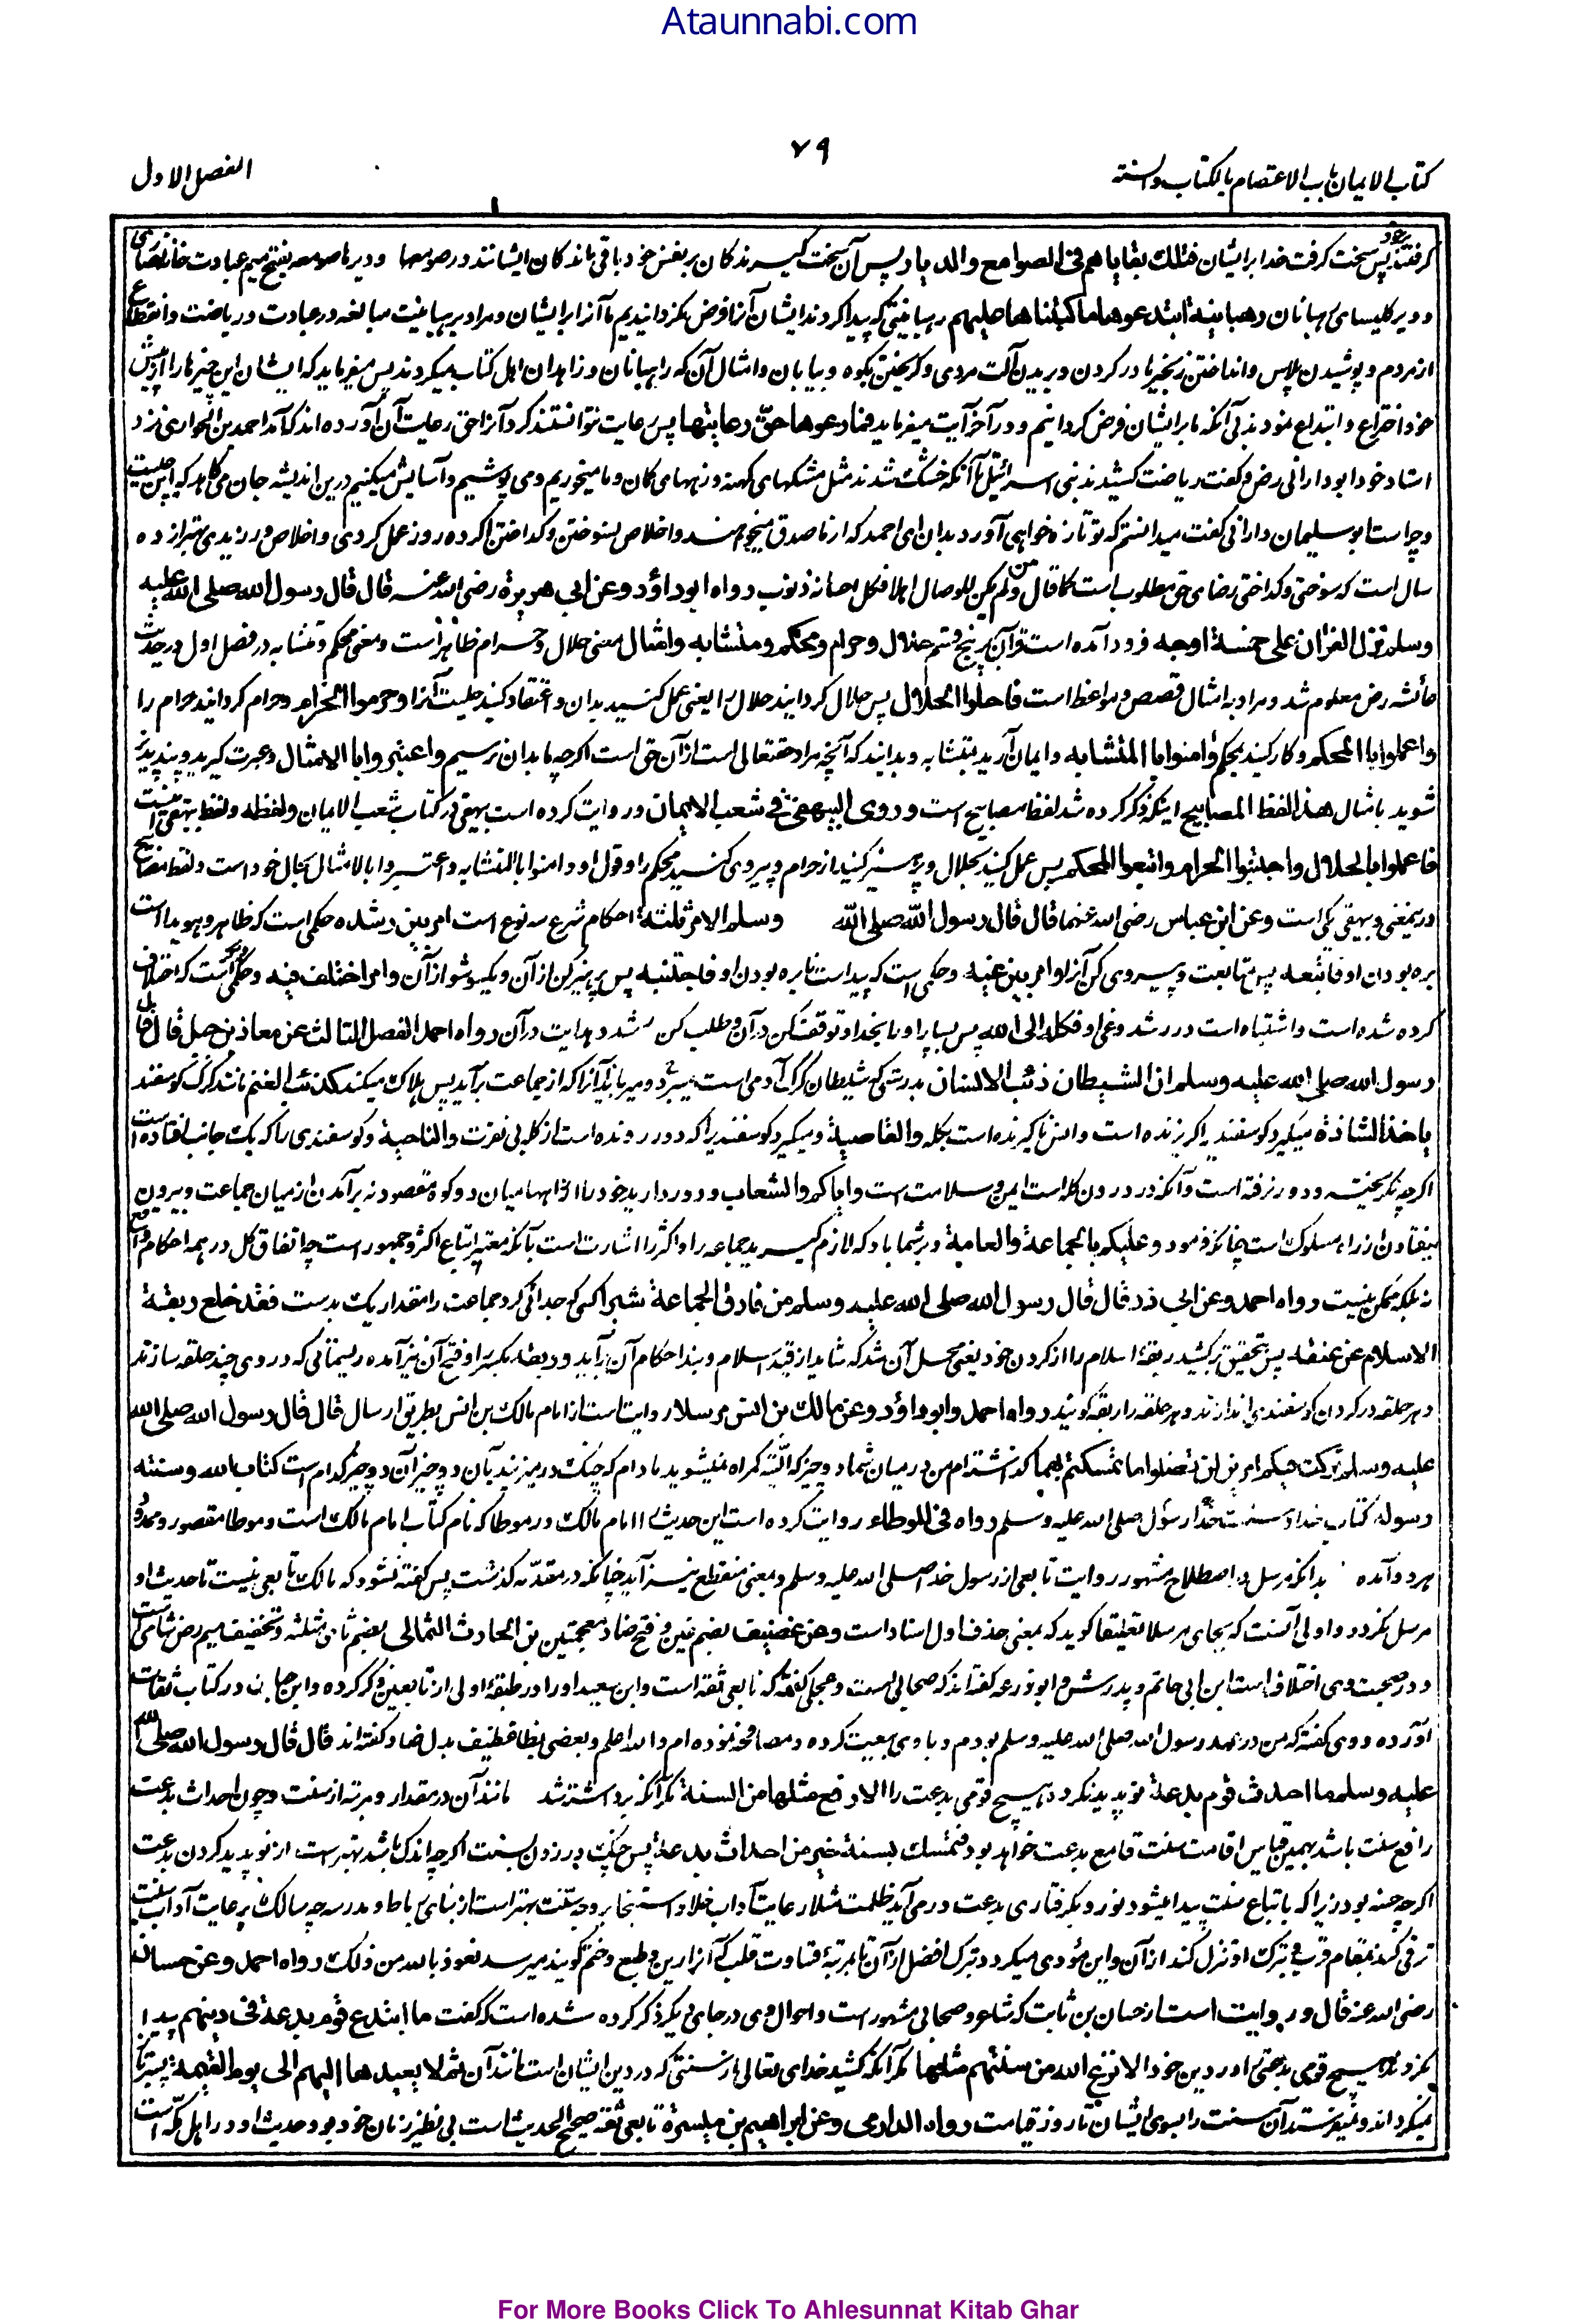 Ataunnabi.com
۷۹
کتاب الایمان باب الاعتصام بالکتاب والسنة
الفصل الاول
گرفتند پس سخت گرفت خدا بر ایشان فتلك بقایاهم فی الصوامع والدیار پس آن سخت گیرندگان بر نفس خود باقی ماندگان ایشانند در صومعها و دیرها صومعه بفتح میم عبادت خانه نصاری
و دیر کلیسای رهبانان رهبانیة ابتدعوها ما کتبناها علیهم رهبانیتی که پیدا کردند ایشان آنرا فرض نگردانیدیم ما آنرا بر ایشان و مراد برهبانیت مبالغه در عبادت و ریاضت و انقطاع
از مردم و پوشیدن پلاس و انداختن زنجیرها در گردن و بریدن آلت مردی و گریختن بکوه و بیابان و امثال آن که راهبانان و زاهدان اهل کتاب میکردند پس میفرماید که ایشان این چیزها را از پیش
خود اختراع و ابتداع نمودند بی آنکه ما بر ایشان فرض گردانیم و در آخر آیت میفرماید فما رعوها حق رعایتها پس رعایت نتوانستند کرد آنرا حق رعایت آن آورده اند که آمد احمد بن الحواری نزد
استاد خود ابو دارانی رض و گفت ریاضت کشیدند بنی اسرائیل تا آنکه خشک شدند مثل مشکهای کهنه و زههای کمان و ما میخوریم و می پوشیم و آسایش میکنیم درین اندیشه جان می کاهد که این چیست
و چراست ابو سلیمان دارانی گفت میدانستم که تو تازه خواهی آورد بدان ای احمد که از ما صدق میخواهند و اخلاص نسوختن و گداختن اگر ده روز عمل کردی و اخلاص ورزیدی بهتر از ده
سال است که سوختی و گداختی رضای حق مطلوب است کما قال ومن لم یکن للوصال اهلا فکل احسانه ذنوب رواه ابو داؤد وعن ابی هریرة رضی الله عنه قال قال رسول الله صلی الله علیه
وسلم نزل القرآن علی خمسة اوجه فرود آمده است قرآن بر پنج قسم حلال وحرام ومحکم ومتشابه وامثال معنی حلال و حرام ظاهر است و معنی محکم و متشابه در فصل اول در حدیث
عائشه رض معلوم شد و مراد به امثال قصص و مواعظ است فاحلوا الحلال پس حلال گردانید حلال را یعنی عمل کنید بدان و اعتقاد کنید حلیت آنرا وحرموا الحرام و حرام گردانید حرام را
واعملوا بالمحکم و کار کنید بمحکم وآمنوا بالمتشابه و ایمان آرید بمتشابه و بدانید که آنچه مراد حقتعالی است از آن حق است اگرچه ما بدان نرسیم واعتبروا بالامثال و عبرت گیرید و پند پذیر
شوید بامثال هذا لفظ المصابیح اینکه ذکر کرده شد لفظ مصابیح است وروی البیهقی فی شعب الایمان و روایت کرده است بیهقی در کتاب شعب الایمان ولفظه و لفظ بیهقی اینست
فاعملوا بالحلال واجتنبوا الحرام واتبعوا المحکم پس عمل کنید بحلال و پرهیز کنید از حرام و پیروی کنید محکم را و قول او و امنوا بالمتشابه و اعتبروا بالامثال بحال خود است و لفظ مصابیح
درینمعنی و بیهقی یکی است وعن ابن عباس رضی الله عنهما قال قال رسول الله صلی الله وسلم الامر ثلثة احکام شرع سه نوع است امر بین رشده حکمی است که ظاهر و هویدا است
بره بودن او فاتبعه پس متابعت و پیروی کن آنرا وامر بین غیه و حکمی است که پیداست نابره بودن او فاجتنبه پس پرهیز کن از آن و یکسو شو از آن وامر اختلف فیه و حکمی است که اختلاف
کرده شده است و اشتباه است در رشد و غی او فکله الی الله پس بسپار او را بخدا و توقف کن در آن و طلب کن رشد و هدایت در آن رواه احمد الفصل الثالث عن معاذ بن جبل قال قال
رسول الله صلی الله علیه وسلم ان الشیطان ذئب الانسان بدرستی که شیطان گرگ آدمی است میبرد و میرباید آنرا که از جماعت برآید پس هلاک میکند کذئب الغنم مانند گرگ گوسفند
یاخذ الشاذة میگیرد گوسفندی را گریزنده است و انس ناگیرنده است بگله والقاصیة و میگیرد گوسفندیرا که دور رونده است از گله بی نفرت والناحیة و گوسفندی را که یک جانب افتاده است
اگرچه نگریخته و دور نرفته است و آنکه در درون گله است ایمن و سلامت است وایاکم والشعاب و دور دارید خود را از راهها میان دو کوه مقصود نه برآمدن از میان جماعت و بیرون
نیفتادن از راه مسلوک است چنانکه فرمود وعلیکم بالجماعة والعامة و بر شما باد که لازم گیرید جماعه را و اکثر را اشارت است بآنکه معتبر اتباع اکثر و جمهور است چه اتفاق کل در همه احکام واقع
نه بلکه ممکن نیست رواه احمد وعن ابی ذر قال قال رسول الله صلی الله علیه وسلم من فارق الجماعة شبرا کسی که جدائی کرد جماعت را مقدار یک بدست فقد خلع ربقة
الاسلام عن عنقه پس بتحقیق برکشید ربقهٔ اسلام را از گردن خود یعنی محل آن شد که شاید از قید اسلام و بند احکام آن برآید و ربقه بکسر را و فتح آن نیز آمده ریسمانی که در وی چند حلقه سازند
و هر حلقه در گردن گوسفندی اندازند و هر حلقه را ربقه گویند رواه احمد وابو داؤد وعن مالك بن انس مرسلا روایت است از امام مالک بن انس بطریق ارسال قال قال رسول الله صلی الله
علیه وسلم ترکت فیکم امرین لن تضلوا ما تمسکتم بهما گذاشته ام من در میان شما دو چیز که البته گمراه نمیشوید مادام که چنگ درمیزنید بآن دو چیز آن دو چیز کدام است کتاب الله وسنته
رسوله کتاب خدا و سنت رسول خدا صلی الله علیه وسلم رواه فی الموطاء روایت کرده است این حدیث را امام مالک در موطا که نام کتاب امام مالک است و موطا مقصور و ممدود
هر دو آمده بدانکه مرسل در اصطلاح مشهور روایت تابعی از رسول خدا صلی الله علیه وسلم و بمعنی منقطع نیز آید چنانکه در مقدمه گذشت پس گفته نشود که مالک تابعی نیست تا حدیث او
مرسل گردد و اولی آنست که بجای مرسلا تعلیقا گوید که بمعنی حذف اول اسناد است وعن غضیف بضم غین و فتح ضاد معجمتین بن الحارث الثمالی بضم ثای مثلثه و تخفیف میم رض شامی است
و در صحبت وی اختلاف است ابن ابی حاتم و پدرش و ابو زرعه گفته اند که صحابی است و عجلی گفته که تابعی ثقه است و ابن سعید او را در طبقهٔ اولی از تابعین ذکر کرده و ابن حبان در کتاب ثقات
آورده و وی گفته که من در عهد رسول الله صلی الله علیه وسلم بودم و با وی بیعت کرده و مصافحه نموده ام والله اعلم و بعضی بظا غظیف بدل ضاد گفته اند قال قال رسول الله صلی الله
علیه وسلم ما احدث قوم بدعة نو پدید نکرد هیچ قومی بدعت را الا رفع مثلها من السنة مگر آنکه برداشته شد مانند آن در مقدار و مرتبه از سنت و چون احداث بدعت
رافع سنت باشد بهمین قیاس اقامت سنت قامع بدعت خواهد بود فتمسك بسنة خیر من احداث بدعة پس چنگ در زدن بسنت اگرچه اندک باشد بهتر است از نو پدید کردن بدعت
اگرچه حسنه بود زیرا که باتباع سنت پیدا میشود نور و بگرفتاری بدعت درمی آید ظلمت مثلا رعایت آداب خلا و استنجا بر وجه سنت بهتر است از بنای رباط و مدرسه چه سالک برعایت آداب سنت
ترقی کند بمقام قرب و بترک او تنزل کند از آن و این مؤدی میگردد بترک افضل از آن تا بمرتبهٔ قساوت قلب که آنرا رین و طبع و ختم گویند میرسد نعوذ بالله من ذلک رواه احمد وعن حسان
رضی الله عنه قال و روایت است از حسان بن ثابت که شاعر و صحابی مشهور است و احوال وی در جای دیگر ذکر کرده شده است که گفت ما ابتدع قوم بدعة فی دینهم پیدا
نکردند هیچ قومی بدعتی را در دین خود الا نزع الله من سنتهم مثلها مگر آنکه کشید خدای تعالی از سنتی که در دین ایشان است مانند آن ثم لا یعیدها الیهم الی یوم القیمة پستر باز
نمیگرداند و نمیفرستد آن سنت را بسوی ایشان تا روز قیامت رواه الدارمی وعن ابراهیم بن میسرة تابعی ثقه صحیح الحدیث است بی نظیر زمان خود بود و حدیث او در اهل مکه است
For More Books Click To Ahlesunnat Kitab Ghar